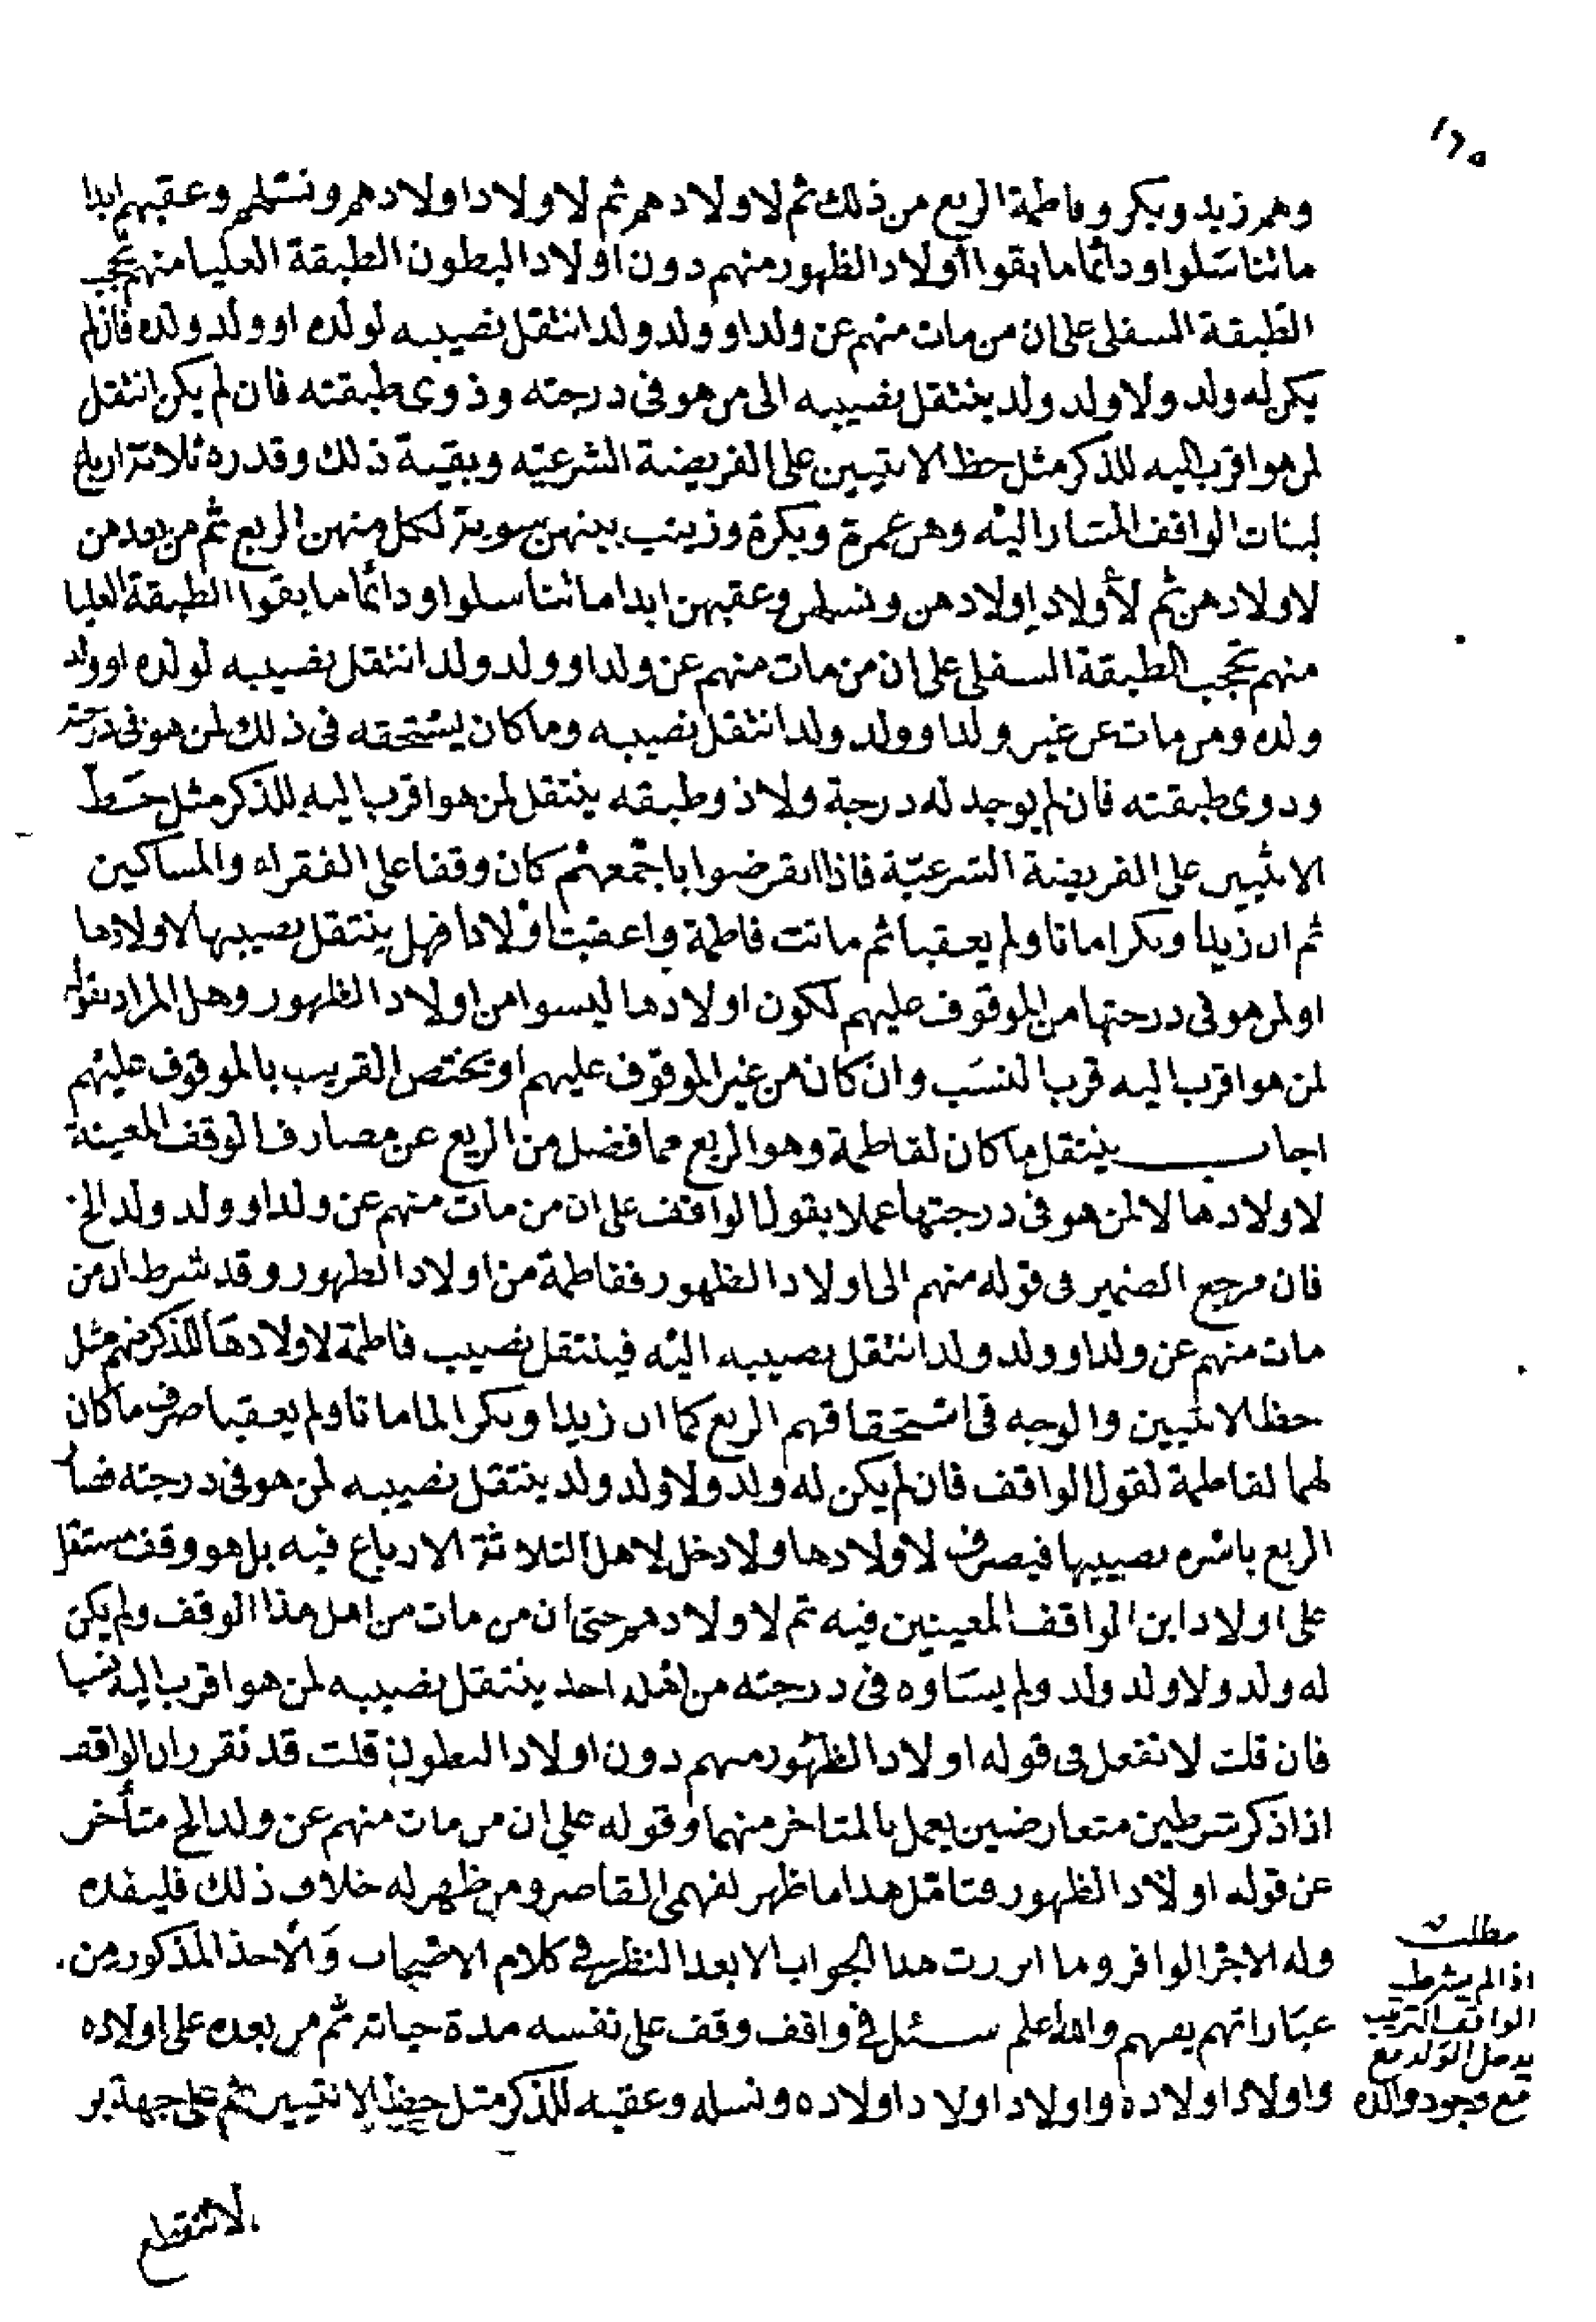 ١٢٥
وهم زيد وبكر وفاطمة الربع من ذلك ثم لاولادهم ثم لاولاد اولادهم ونسلهم وعقبهم ابدا
ما تناسلوا ودائما ما بقوا أولاد الظهور منهم دون اولاد البطون الطبقة العليا منهم تحجب
الطبقة السفلى على ان من مات منهم عن ولد او ولد ولد انتقل نصيبه لولده او ولد ولده فان لم
يكن له ولد ولا ولد ولد ينتقل نصيبه الى من هو فى درجته وذوى طبقته فان لم يكن انتقل
لمن هو اقرب اليه للذكر مثل حظ الانثيين على الفريضة الشرعيّه وبقية ذلك وقدره ثلاثة ارباع
لبنات الواقف المشار اليه وهن عمرة وبكرة وزينب بينهن سوية لكل منهن الربع ثم من بعدهن
لاولادهن ثم لأولاد اولادهن ونسلهن وعقبهن ابدا ما تناسلوا ودائما ما بقوا الطبقة العليا
منهم تحجب الطبقة السفلى على ان من مات منهم عن ولد او ولد ولد انتقل نصيبه لولده او ولد
ولده ومن مات عن غير ولد او ولد ولد انتقل نصيبه وما كان يستحقه فى ذلك لمن هو فى درجته
ودوى طبقته فان لم يوجد له درجة ولا ذو طبقه ينتقل لمن هو اقرب اليه للذكر مثل حَظّ
الانثيين على الفريضة الشرعيّة فاذا انقرضوا باجمعهم كان وقفا على الفقراء والمساكين
ثم ان زيدا وبكرا ماتا ولم يعقبا ثم ماتت فاطمة واعقبت اولادا فهل ينتقل نصيبها لاولادها
او لمن هو فى درجتها من الموقوف عليهم لكون اولادها ليسوا من اولاد الظهور وهل المراد بقوله
لمن هو اقرب اليه قرب النسَب وان كان من غير الموقوف عليهم او يختص القريب بالموقوف عليهم
اجاب ينتقل ما كان لفاطمة وهو الربع مما فضل من الريع عن مصارف الوقف المعينة
لاولادها لا لمن هو فى درجتها عملا بقول الواقف على ان من مات منهم عن ولد او ولد ولد الخ
فان مرجع الضمير فى قوله منهم الى اولاد الظهور ففاطمة من اولاد الظهور وقد شرط ان من
مات منهم عن ولد او ولد ولد انتقل نصيبه اليه فينتقل نصيب فاطمة لاولادهَا للذكر منهم مثل
حظ الانثيين والوجه فى استحقاقهم الربع كما ان زيدا وبكرا لما ماتا ولم يعقبا صرف ما كان
لهما لفاطمة لقول الواقف فان لم يكن له ولد ولا ولد ولد ينتقل نصيبه لمن هو فى درجته فصار
الربع باسره نصيبها فيصرف لاولادها ولا دخل لاهل الثلاثة الارباع فيه بل هو وقف مستقل
على اولاد ابن الواقف المعينين فيه ثم لاولادهم حتى ان من مات من اهل هذا الوقف ولم يكن
له ولد ولا ولد ولد ولم يسَاوه فى درجته من اهله احد ينتقل نصيبه لمن هو اقرب اليه نسبا
فان قلت لا تفعل فى قوله اولاد الظهور منهم دون اولاد البطون قلت قد تقرر ان الواقف
اذا ذكر شرطين متعارضين يعمل بالمتاخر منهما وقوله على ان من مات منهم عن ولد الخ متأخر
عن قوله اولاد الظهور فتامّل هذا ما ظهر لفهمى القاصر ومن ظهر له خلاف ذلك فليفده
وله الاجر الوافر وما ابررت هذا الجواب الا بعد النظر فى كلام الاصحاب وَالأخذ المذكور من
عبَاراتهم يفهم والله اعلم سئل فى واقف وقف على نفسه مدة حياته ثم من بعده على اولاده
واولاد اولاده واولاد اولاد اولاده ونسله وعقبه للذكر مثل حظ الانثيين ثم على جهة بر
مطلب
اذا لم يشرط
الواقف الترتيب
يدخل الولد مع
مع وجود والده
لا تنقطع